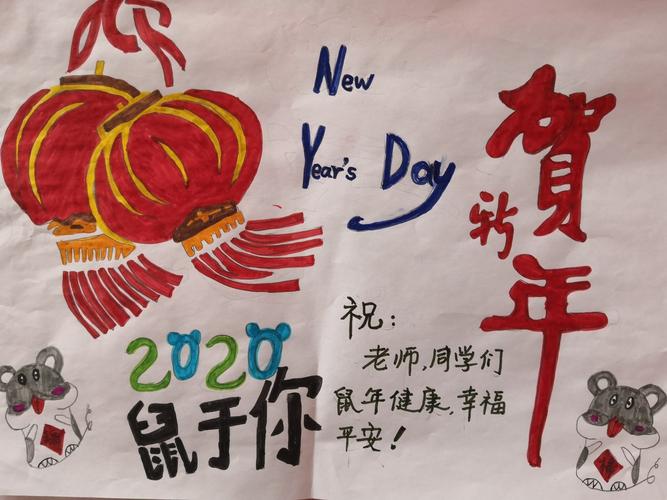 New
Year's Day
贺
新
年
2020
鼠于你
祝:
老师,同学们
鼠年健康,幸福
平安!
福